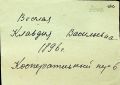 Веселая
Клавдия Васильевна
1896г.
Кооперативный пер 6